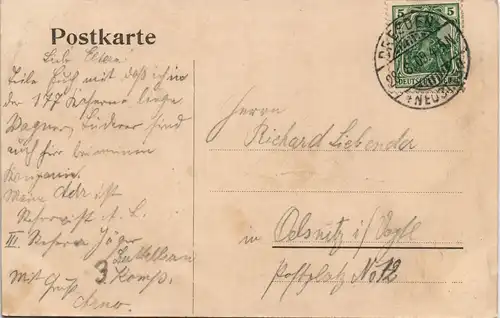 Postkarte
Liebe Eltern!
Teile Euch mit daß ich in
der 177 Kaserne liege
Wagner, Lüderer sind
auch hier bei meiner
Kompanie.
Meine Adr. ist
Reservist A. L.
III. Reserve Jäger
Battellion
3. Komp.
Mit Gruß
Arno.
5
DRESDEN
NEUST.
Herrn
Richard Liebender
in Oelsnitz i/Vogtl
Postplatz No 12